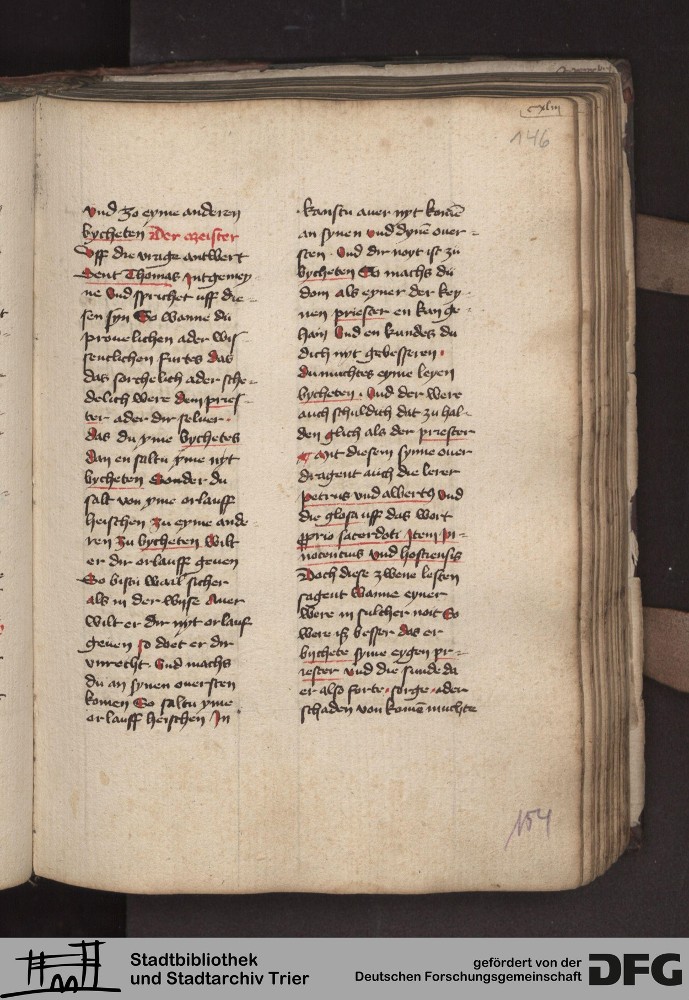 cxlvi
146
vnd zo eyme anderen
bycheten Der meister
Vff die vrage antwert
Sent Thomas Intgemey
ne vnd sprichet uff die
sen syn So wanne du
prouelichen ader wis
sentlichen furtes das
das sorchelich ader sche
delich were dem pries
ter ader dir seluer
das du yme bychetes
dan en saltu yme nyt
bycheten Sonder du
salt von yme orlauff
heischen zu eyme ande
ren zu bycheten wilt
er dir orlauff geuen
So bistu wail sicher
als in der wyse Auer
wilt er dir nyt orlauf
geuen so doet er dir
vnrecht Vnd machs
du an synen ouersten
komen So saltu yme
orlauff heischen In
kanstu auer nyt komē
an synen vnd dynē ouer
sten Vnd dir noyt ist zu
bycheten So machs du
dom als eyner der key
nen priester en kan ge
hain Vnd en kundes du
dich nyt gebesseren
du muchtes eyme leyen
bycheten Vnd der were
auch schuldich dat zu hal
den glich als der priester
mit diesem synne ouer
dragent auch die lerer
petrus vnd albertꝰ vnd
die glosa uff das wort
ꝓprio sacerdoti Item In
nocencius vnd hostiensis
Doch diese zwene lesten
sagent wanne eyner
were in sulcher noit So
were iß besser das er
bychete syme eygen pri
rester vnd die sunde da
er also forte sorge ader
schaden von komē muchte
154
Stadtbibliothek
und Stadtarchiv Trier
gefördert von der
Deutschen Forschungsgemeinschaft
DFG